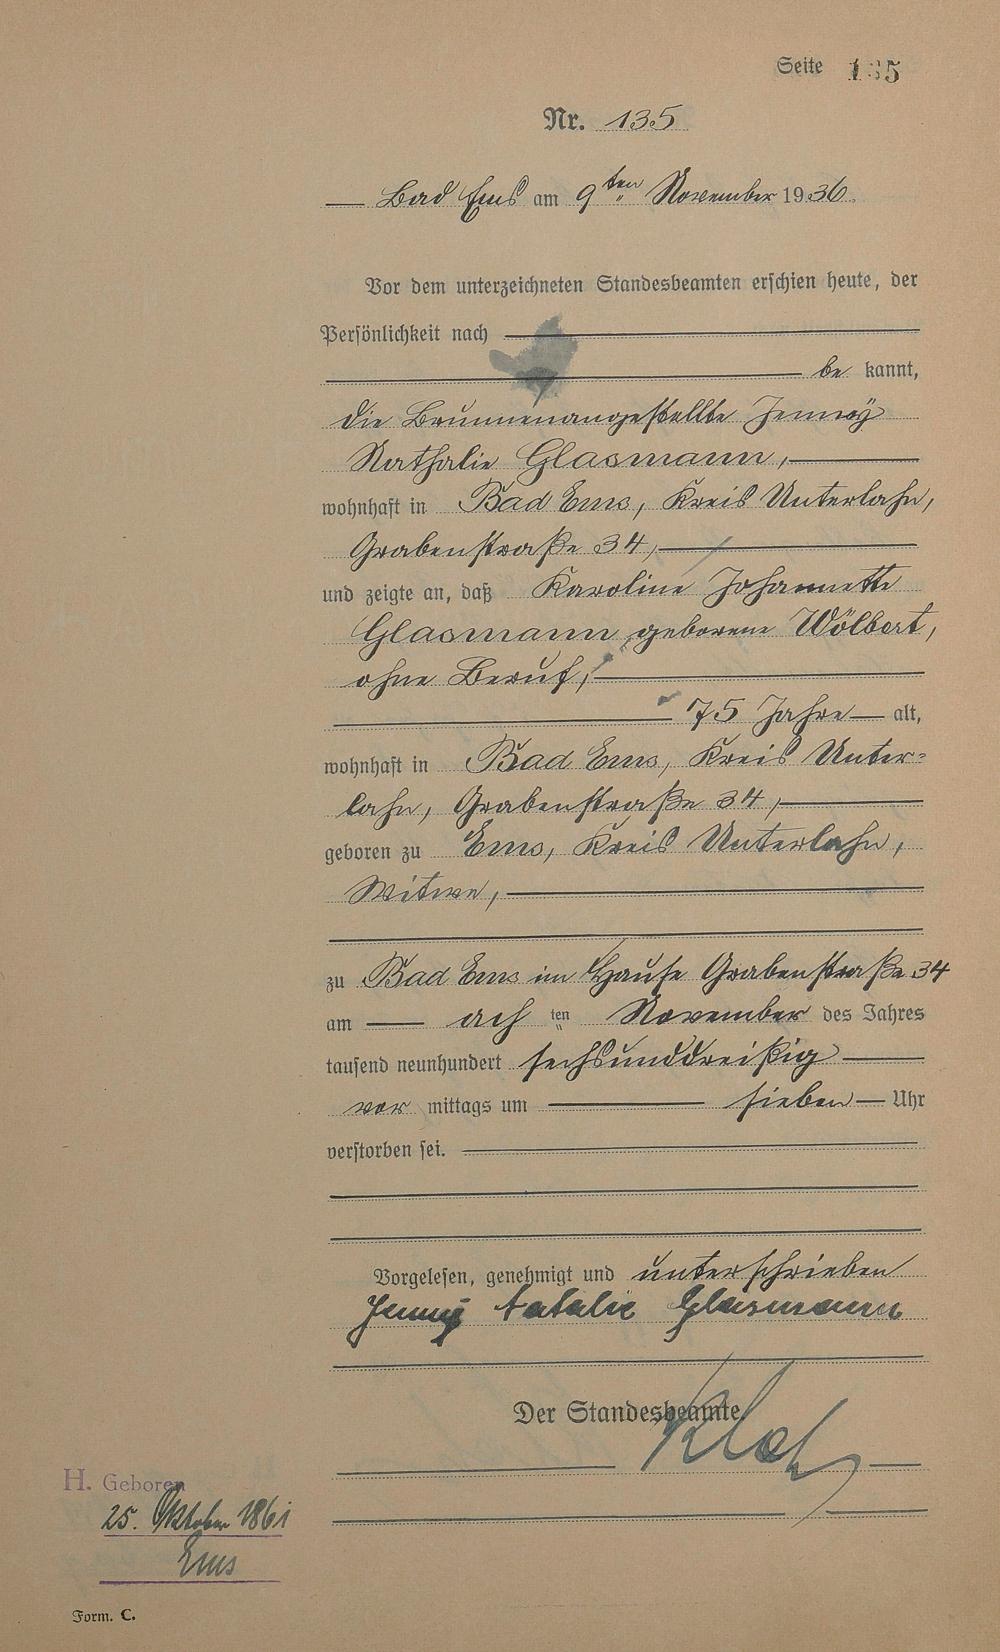 Seite 135
Nr. 135
Bad Ems am 9ten November 1936.
Vor dem unterzeichneten Standesbeamten erschien heute, der
Persönlichkeit nach
be kannt,
die Brunnenangestellte Jenny
Nathalie Glasmann,
wohnhaft in Bad Ems, Kreis Unterlahn,
Grabenstraße 34,
und zeigte an, daß Karoline Johannette
Glasmann geborene Wölbert,
ohne Beruf,
75 Jahre alt,
wohnhaft in Bad Ems, Kreis Unter-
lahn, Grabenstraße 34,
geboren zu Ems, Kreis Unterlahn,
Witwe,
zu Bad Ems im Hause Grabenstraße 34
am ach ten November des Jahres
tausend neunhundert sechsunddreißig
vor mittags um sieben Uhr
verstorben sei.
Vorgelesen, genehmigt und unterschrieben
Jenny Natalie Glasmann
Der Standesbeamte
H. Geboren
25. Oktober 1861
Ems
Form. C.